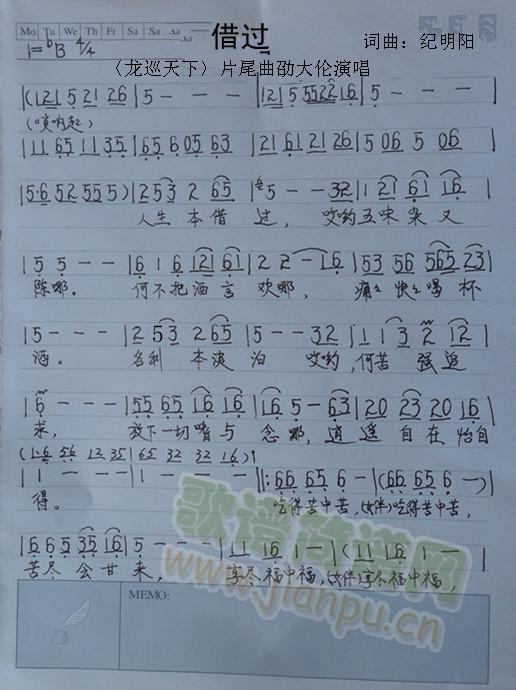 Mo Tu We Th Fr Sa Su
借过
词曲：纪明阳
1=bB 4/4
〈龙巡天下〉片尾曲劭大伦演唱
|(121 5 21 26 |5 - - - |121 5 5522 16 |5 - - - |
(唢呐起)
|11 65 11 35 |65 6 05 63 |21 61 21 26 |5 06 5 06 |
|5·6 52 55 5) |2 53 2 65 |5 - - 32 |1 21 61 16 |
人生 本 借 过， 哎哟五味杂又
|5 5 - - |6 1 6 121 61 |2 2 - 16 |53 56 565 23 |
陈哪。 何不把酒言 欢哪， 痛痛快快喝杯
|5 - - - |2 53 2 65 |5 - - 32 |1 1 3 2 12 |
酒。 名利 本淡 泊 哎哟，何苦 强追
|6 - - - |55 65 16 16 |16 5 - 63 |20 23 20 16 |
求， 放下一切嗔与 念哪，逍遥自在怡自
(1·6 56 12 35 |65 32 32 16)|
|1 - - - |1 - - - ||:66 65 6 - |(66 65 6 -)|
得。 吃得苦中苦，(女伴)吃得苦中苦，
|66 5 35 16 |5 - - - |11 16 1 - |(11 16 1 -
苦尽会甘来， 享尽福中福，(女伴)享尽福中福，
歌谱简谱网
www.jianpu.cn
MEMO: